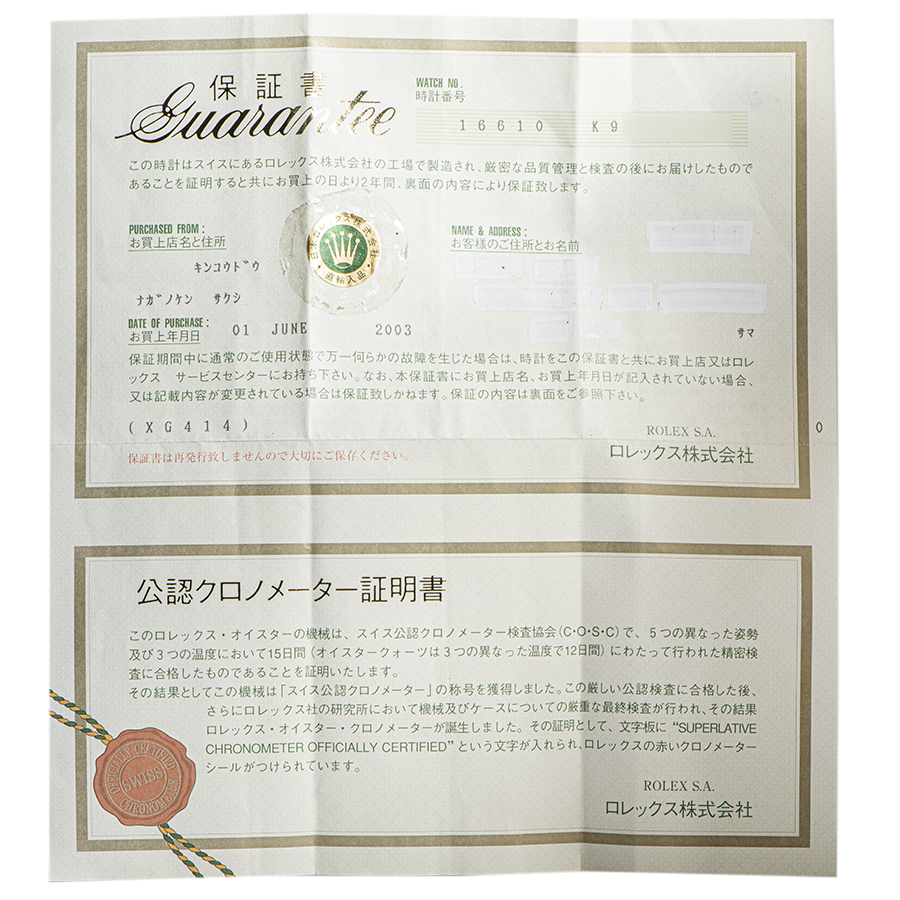 保証書
Guarantee
WATCH NO.
時計番号
16610 K9
この時計はスイスにあるロレックス株式会社の工場で製造され、厳密な品質管理と検査の後にお届けしたもので
あることを証明すると共にお買上の日より2年間、裏面の内容により保証致します。
PURCHASED FROM :
お買上店名と住所
キンコウドウ
ナガノケン サクシ
日本ロレックス株式会社
直輸入品
NAME & ADDRESS :
お客様のご住所とお名前
サマ
DATE OF PURCHASE :
お買上年月日
01 JUNE 2003
保証期間中に通常のご使用状態で万一何らかの故障を生じた場合は、時計をこの保証書と共にお買上店又はロレ
ックス サービスセンターにお持ち下さい。なお、本保証書にお買上店名、お買上年月日が記入されていない場合、
又は記載内容が変更されている場合は保証致しかねます。保証の内容は裏面をご参照下さい。
(XG414)
0
ROLEX S.A.
ロレックス株式会社
保証書は再発行致しませんので大切にご保存ください。
公認クロノメーター証明書
このロレックス・オイスターの機械は、スイス公認クロノメーター検査協会(C・O・S・C)で、5つの異なった姿勢
及び3つの温度において15日間(オイスタークォーツは3つの異なった温度で12日間)にわたって行われた精密検
査に合格したものであることを証明いたします。
その結果としてこの機械は「スイス公認クロノメーター」の称号を獲得しました。この厳しい公認検査に合格した後、
さらにロレックス社の研究所において機械及びケースについての厳重な最終検査が行われ、その結果
ロレックス・オイスター・クロノメーターが誕生しました。その証明として、文字板に "SUPERLATIVE
CHRONOMETER OFFICIALLY CERTIFIED" という文字が入れられ、ロレックスの赤いクロノメーター
シールがつけられています。
OFFICIALLY CERTIFIED
SWISS
CHRONOMETER
ROLEX S.A.
ロレックス株式会社